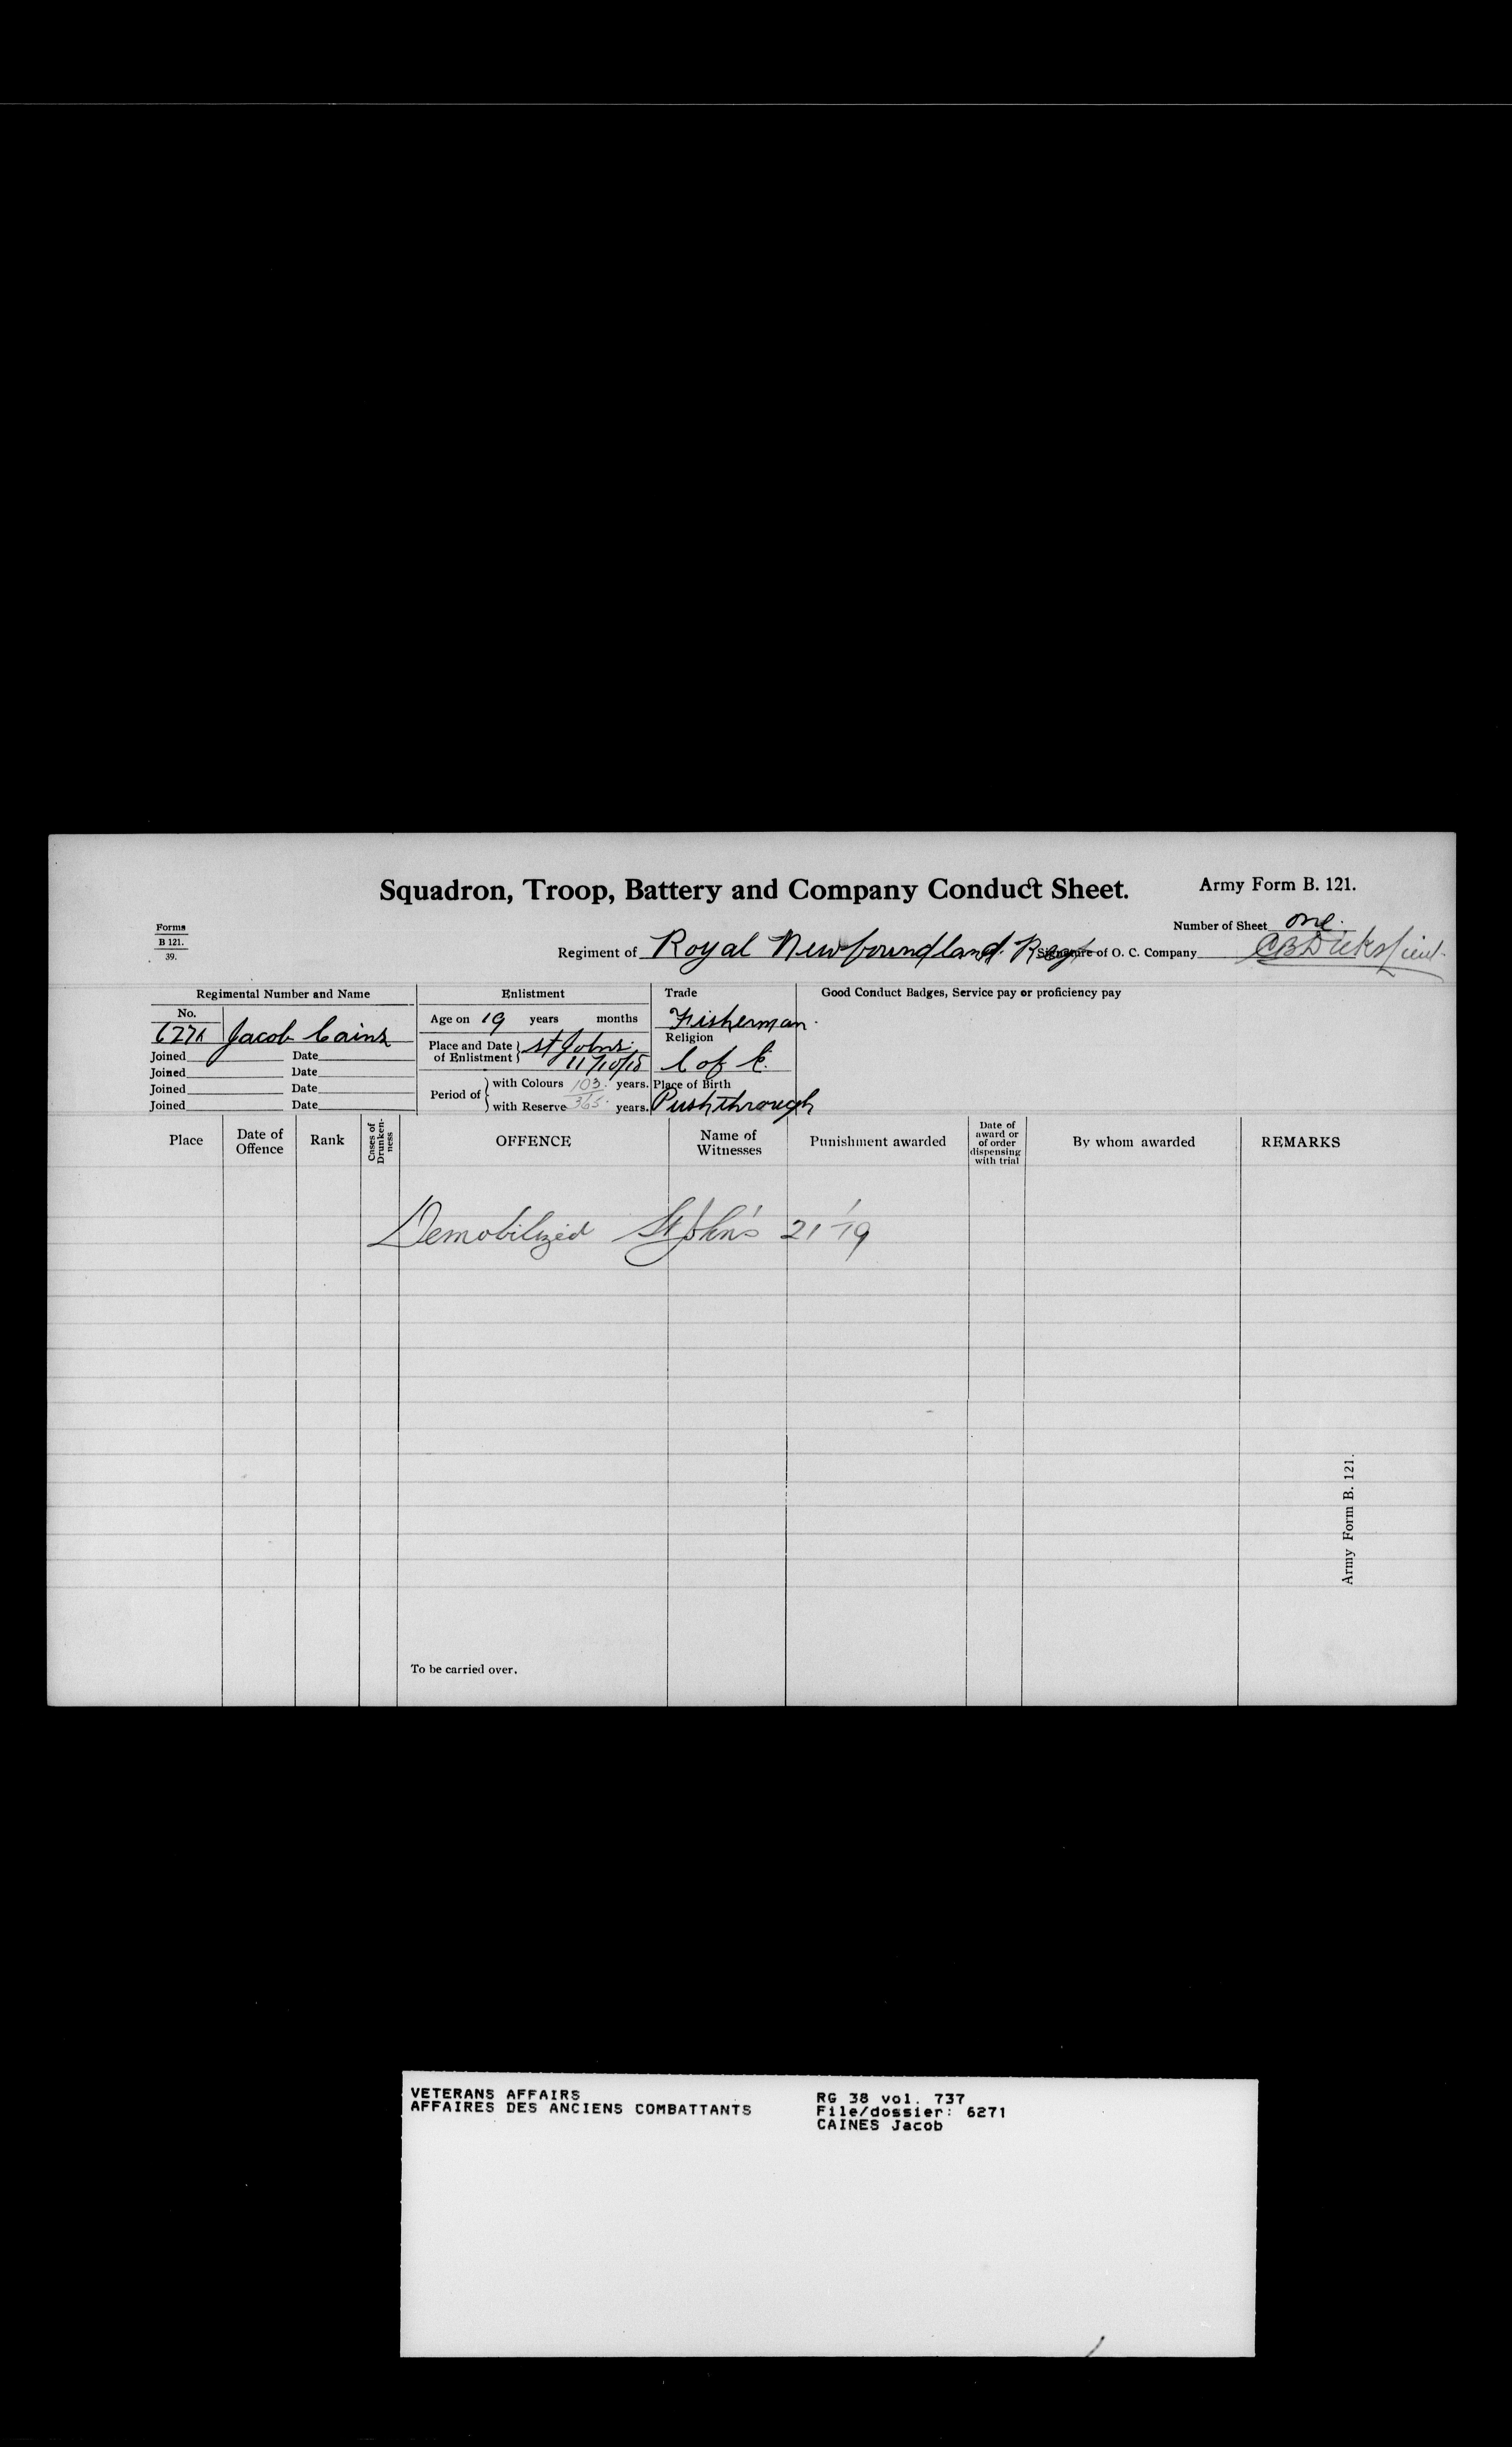 Squadron, Troop, Battery and Company Conduct Sheet.
Army Form B. 121.
Forms
B 121.
39.
Number of Sheet one.
Regiment of Royal Newfoundland Regt
Signature of O. C. Company
Regimental Number and Name
No.
6271 Jacob Cains
Joined Date
Joined Date
Joined Date
Joined Date
Enlistment
Age on 19 years months
Place and Date of Enlistment St Johns.
11/10/18
Period of with Colours 103 years.
365
with Reserve years.
Trade
Fisherman.
Religion
C of E.
Place of Birth
Pushthrough
Good Conduct Badges, Service pay or proficiency pay
Place
Date of Offence
Rank
Cases of Drunken-ness
OFFENCE
Name of Witnesses
Punishment awarded
Date of award or of order dispensing with trial
By whom awarded
REMARKS
Demobilized St John's 21/1/19
To be carried over.
Army Form B. 121.
VETERANS AFFAIRS
AFFAIRES DES ANCIENS COMBATTANTS
RG 38 vol. 737
File/dossier: 6271
CAINES Jacob